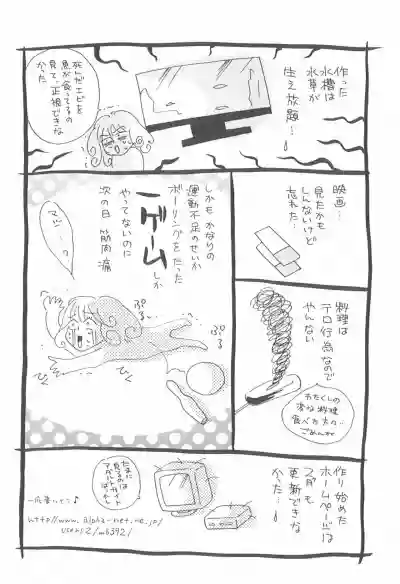 作った
水槽は
水草が
生え放題…
死んだエビを
魚が食ってるの
見て、正視できな
かた
映画…
見たかも
しんないけど
忘れた…
しかもかなりの
運動不足のせいか
ボーリングをたった
一ゲームしか
やってないのに
次の日 筋肉痛
ぷる
ぷる
びく
料理は
テロ行為なので
やんない
わたくしの
変な料理
食べた方の…
ごめんね
作り始めた
ホームページは
2月も
更新できな
かた…
たまには
見るのサイト
http://www.alpha-net.ne.jp/
user12/mb3921/